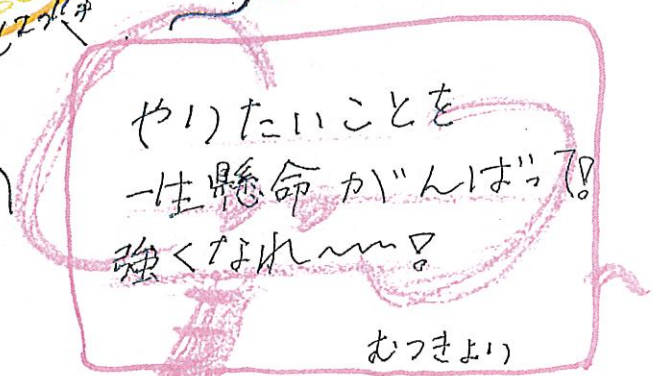 やりたいことを
一生懸命がんばって!
強くなれ〜〜!
むつきより